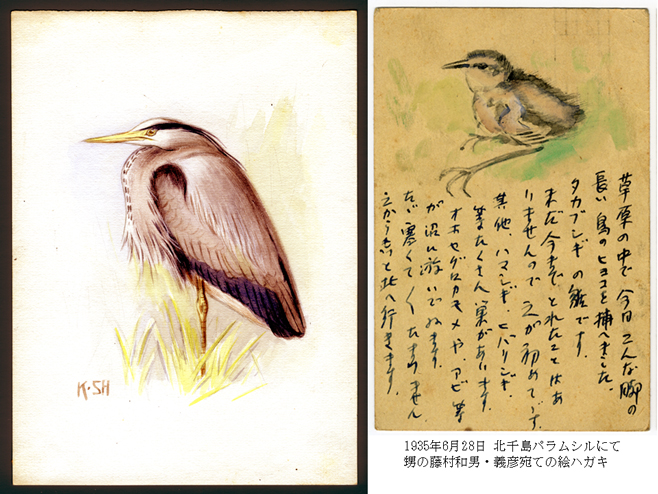 K・SH
草原の中で今日こんな脚の
長い鳥のヒヨコを捕へました。
タカブシギの雛です。
まだ今までとれたことはあ
りませんので之が初めてです。
其他、ハマシギ、ヒバリシギ、
等たくさん巣があります。
オホセグロカモメや、アビ等
が沼に游いでゐます。
たゞ寒くて〱たまりません
之からもっと北へ行きます。
1935年6月28日 北千島パラムシルにて
甥の藤村和男・義彦宛ての絵ハガキ